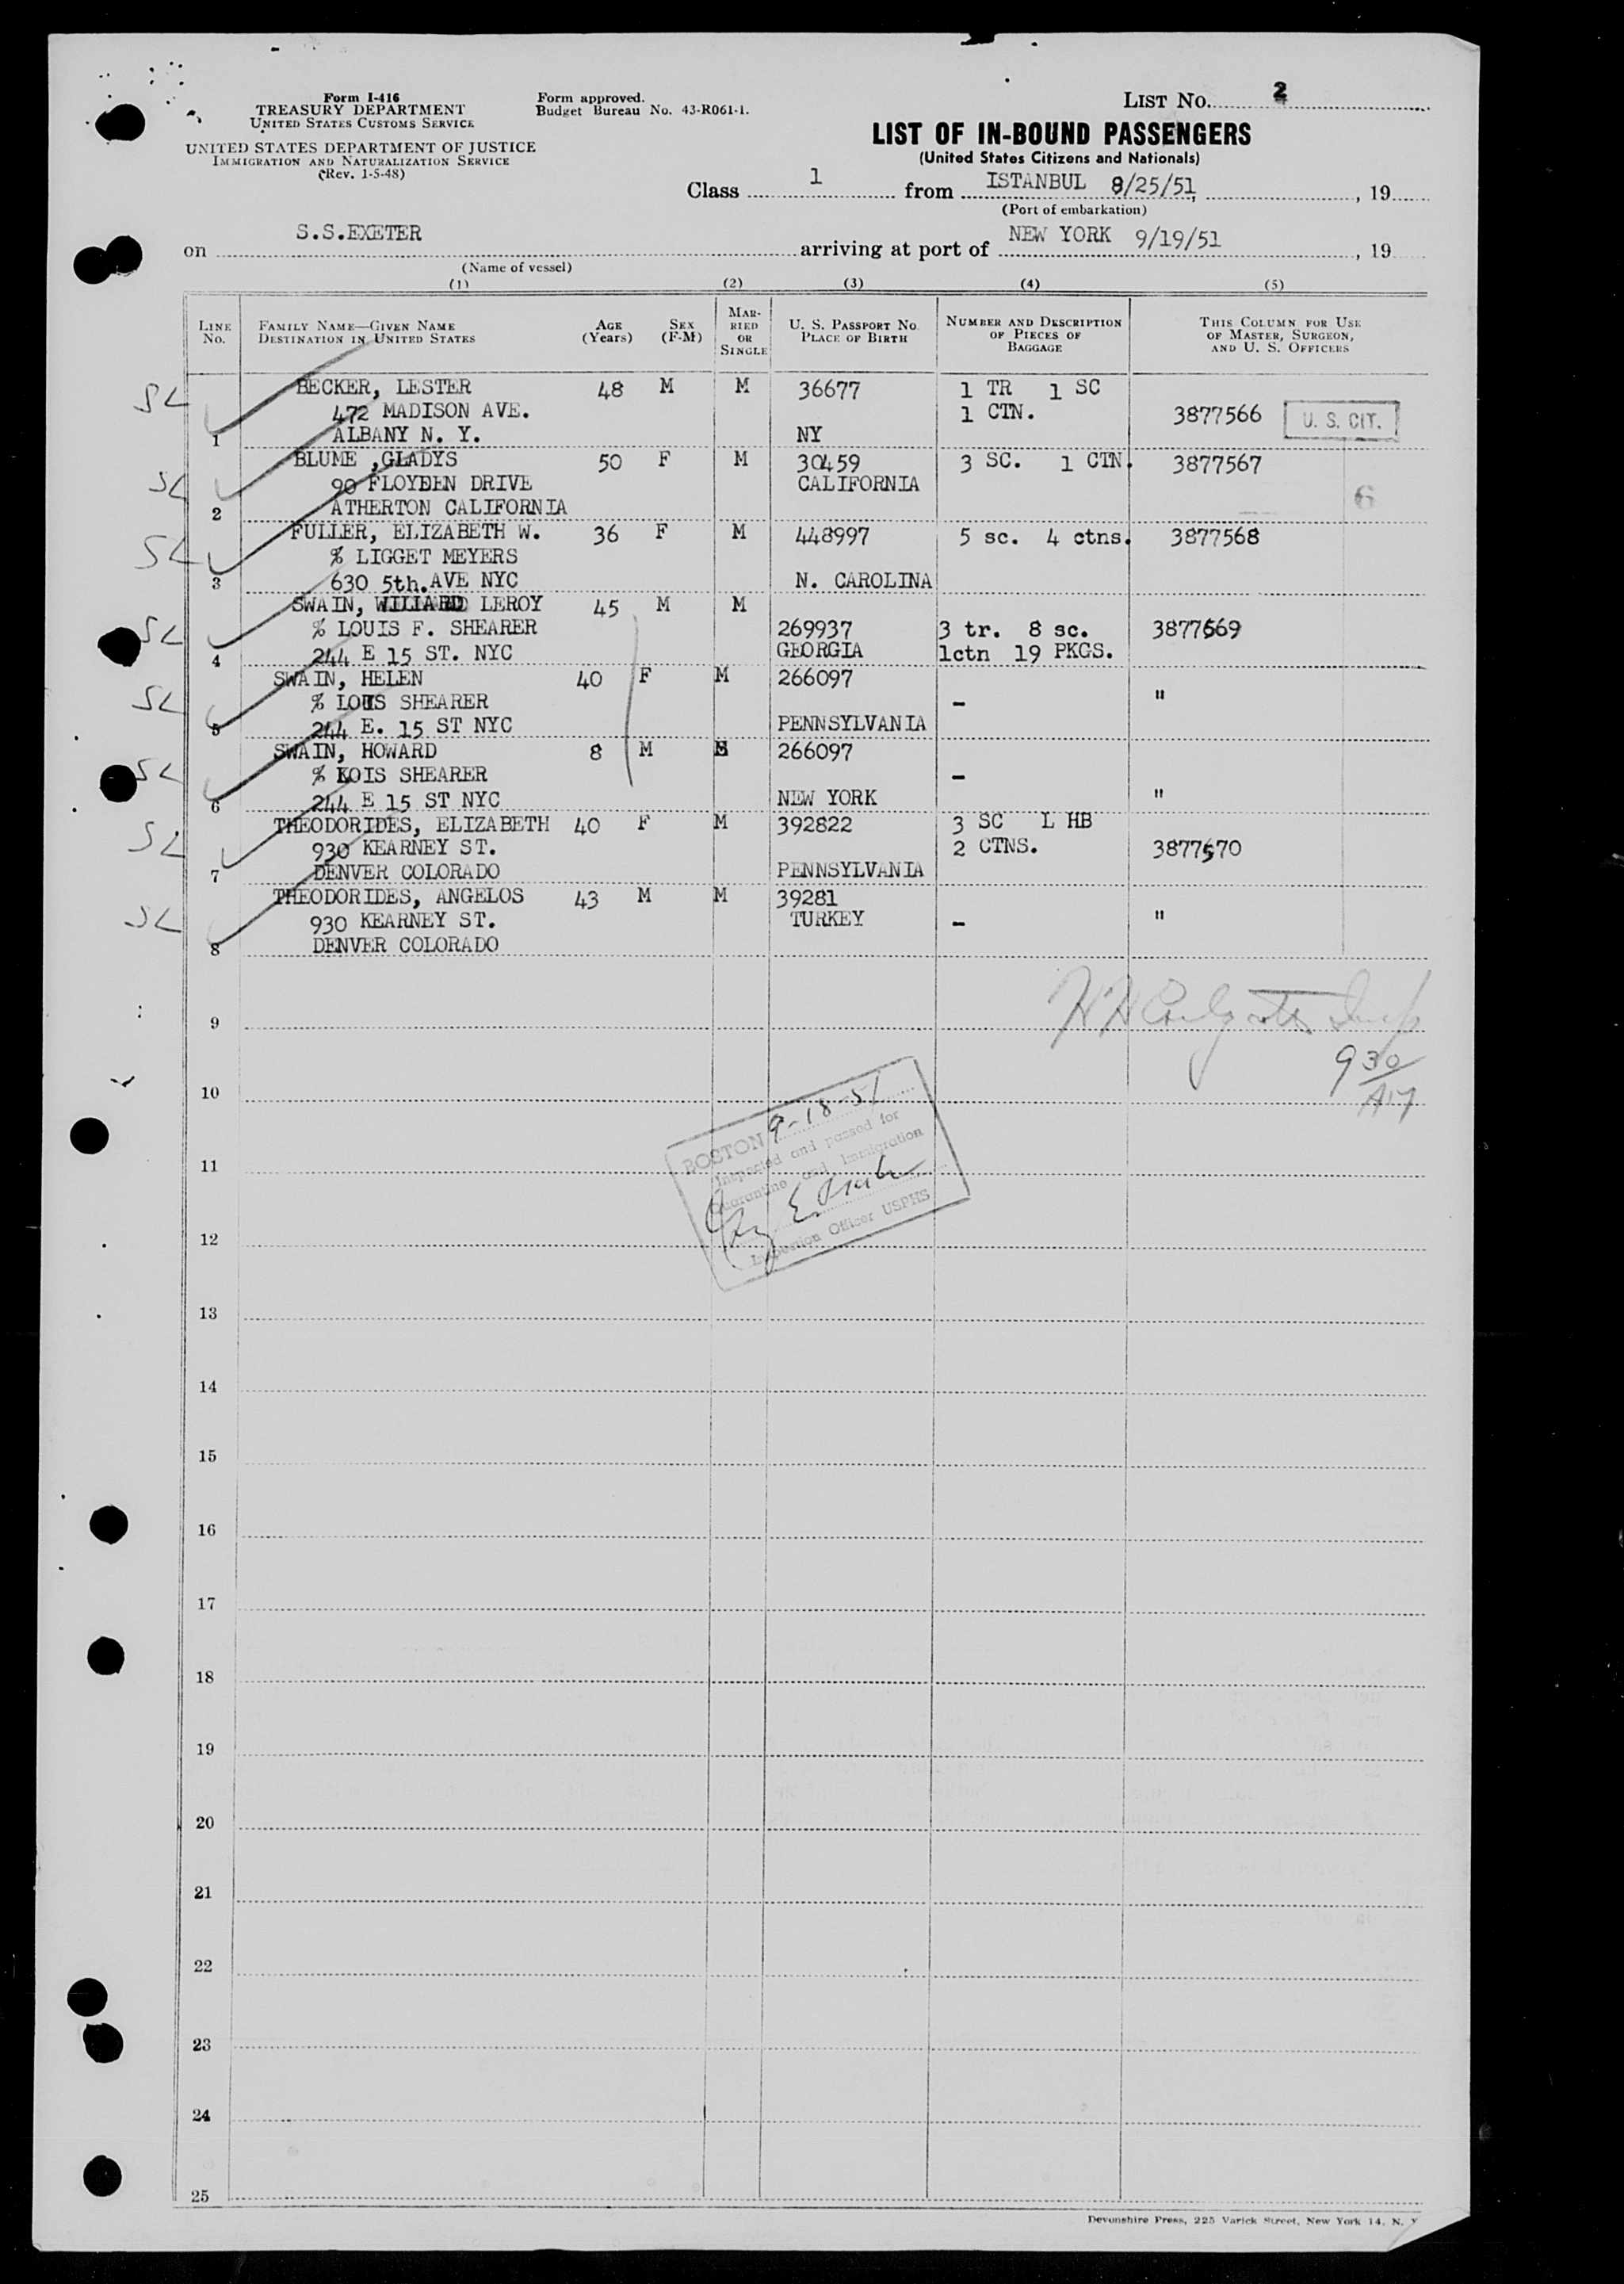 Form I-416
TREASURY DEPARTMENT
UNITED STATES CUSTOMS SERVICE
UNITED STATES DEPARTMENT OF JUSTICE
IMMIGRATION AND NATURALIZATION SERVICE
(Rev. 1-5-48)
Form approved.
Budget Bureau No. 43-R061-1.
LIST NO. 2
LIST OF IN-BOUND PASSENGERS
(United States Citizens and Nationals)
Class 1 from ISTANBUL 8/25/51, , 19
(Port of embarkation)
on S.S.EXETER arriving at port of NEW YORK 9/19/51 , 19
(Name of vessel)
(1) (2) (3) (4) (5)
LINE NO. FAMILY NAME—GIVEN NAME DESTINATION IN UNITED STATES AGE (Years) SEX (F-M) MARRIED OR SINGLE U. S. PASSPORT NO. PLACE OF BIRTH NUMBER AND DESCRIPTION OF PIECES OF BAGGAGE THIS COLUMN FOR USE OF MASTER, SURGEON, AND U. S. OFFICERS
SL BECKER, LESTER 48 M M 36677 1 TR 1 SC
472 MADISON AVE. 1 CTN. 3877566 U. S. CIT.
1 ALBANY N. Y. NY
BLUME ,GLADYS 50 F M 30459 3 SC. 1 CTN. 3877567
SL 90 FLOYDEN DRIVE CALIFORNIA 6
2 ATHERTON CALIFORNIA
FULLER, ELIZABETH W. 36 F M 448997 5 sc. 4 ctns. 3877568
SL % LIGGET MEYERS
3 630 5th. AVE NYC N. CAROLINA
SWAIN, WILLARD LEROY 45 M M
SL % LOUIS F. SHEARER 269937 3 tr. 8 sc. 3877569
4 244 E 15 ST. NYC GEORGIA 1ctn 19 PKGS.
SWAIN, HELEN 40 F M 266097
SL % LOUIS SHEARER - "
5 244 E. 15 ST NYC PENNSYLVANIA
SWAIN, HOWARD 8 M S 266097
SL % LOIS SHEARER -
6 244 E 15 ST NYC NEW YORK "
THEODORIDES, ELIZABETH 40 F M 392822 3 SC L HB
SL 930 KEARNEY ST. 2 CTNS. 3877570
7 DENVER COLORADO PENNSYLVANIA
THEODORIDES, ANGELOS 43 M M 39281
SL 930 KEARNEY ST. TURKEY - "
8 DENVER COLORADO
9
930
AM
10
BOSTON 9-18-51
Inspected and passed for
Quarantine and Immigration
Inspection Officer USPHS
11
12
13
14
15
16
17
18
19
20
21
22
23
24
25
Devonshire Press, 225 Varick Street, New York 14, N. Y